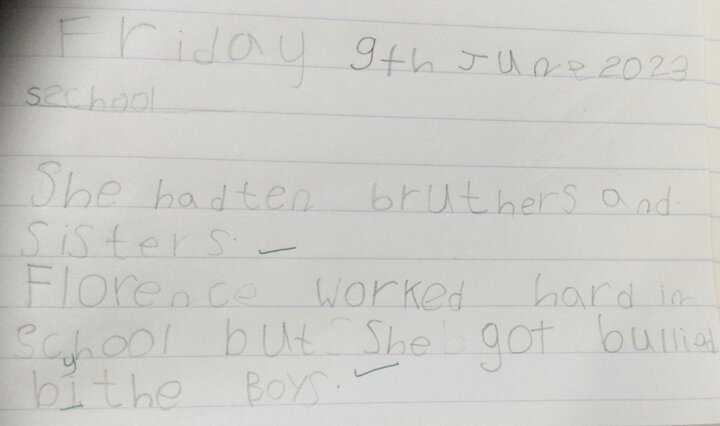 Friday 9th June 2023
sechool
She had ten bruthers and
Sisters.
Florence worked hard in
School but She got bullied
y
bi the Boys.